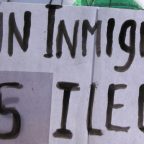 UN INMIG
S ILE